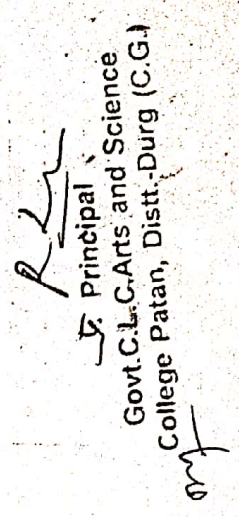 Principal
Govt. C.L.C.Arts and Science
College Patan, Distt.-Durg (C.G.)